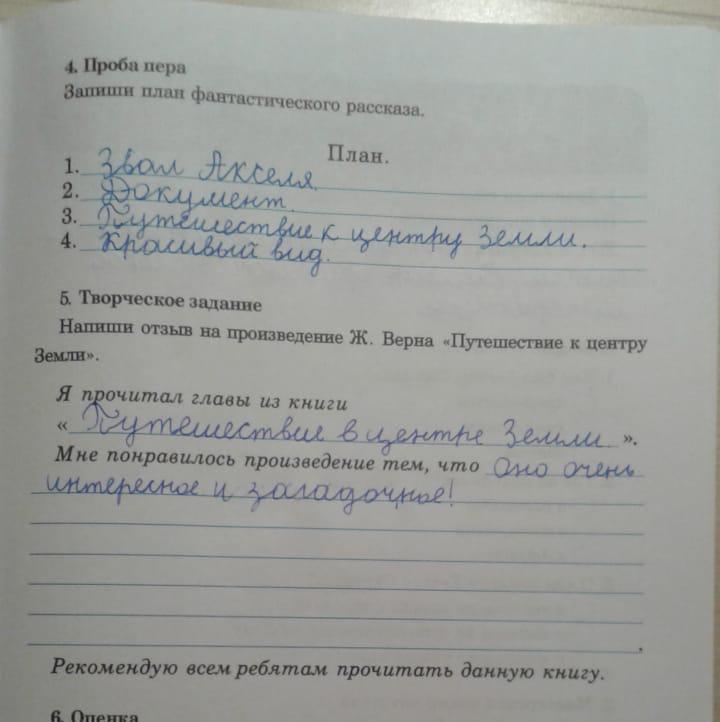 4. Проба пера
Запиши план фантастического рассказа.
План.
1. Звал Акселя.
2. Документ.
3. Путешествие к центру Земли.
4. Красивый вид.
5. Творческое задание
Напиши отзыв на произведение Ж. Верна «Путешествие к центру
Земли».
Я прочитал главы из книги
« Путешествие в центре Земли ».
Мне понравилось произведение тем, что оно очень
интересное и загадочное!
.
Рекомендую всем ребятам прочитать данную книгу.
6. Оценка